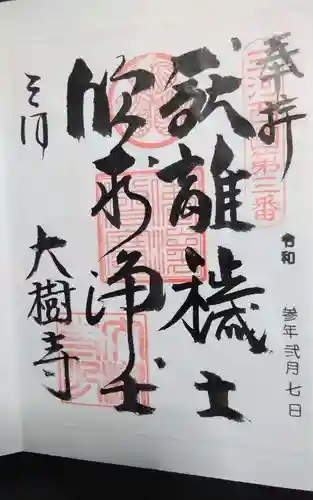 奉拝
第二番
令和
参年弐月七日
厭離穢土
欣求浄土
三河
大樹寺